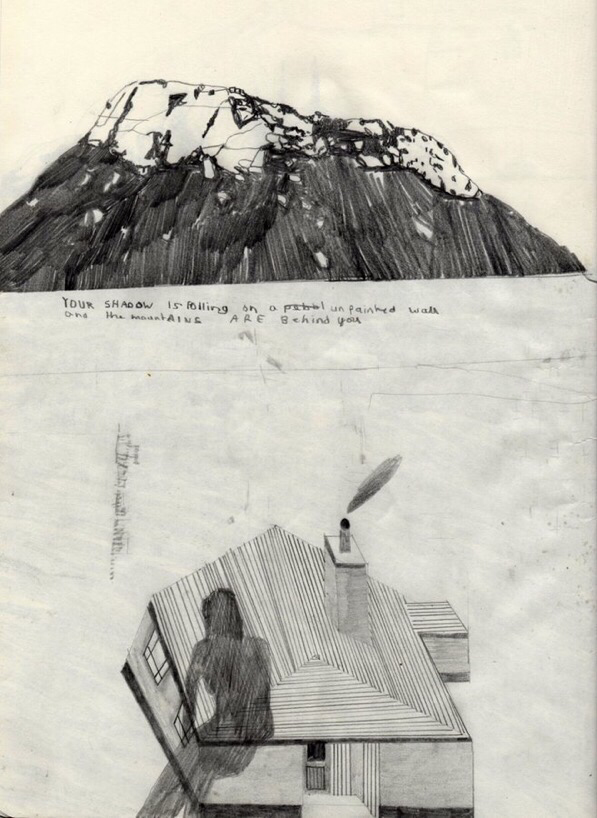 YOUR SHADOW is falling on a unpainted wall
and the mountAINS ARE Behind you